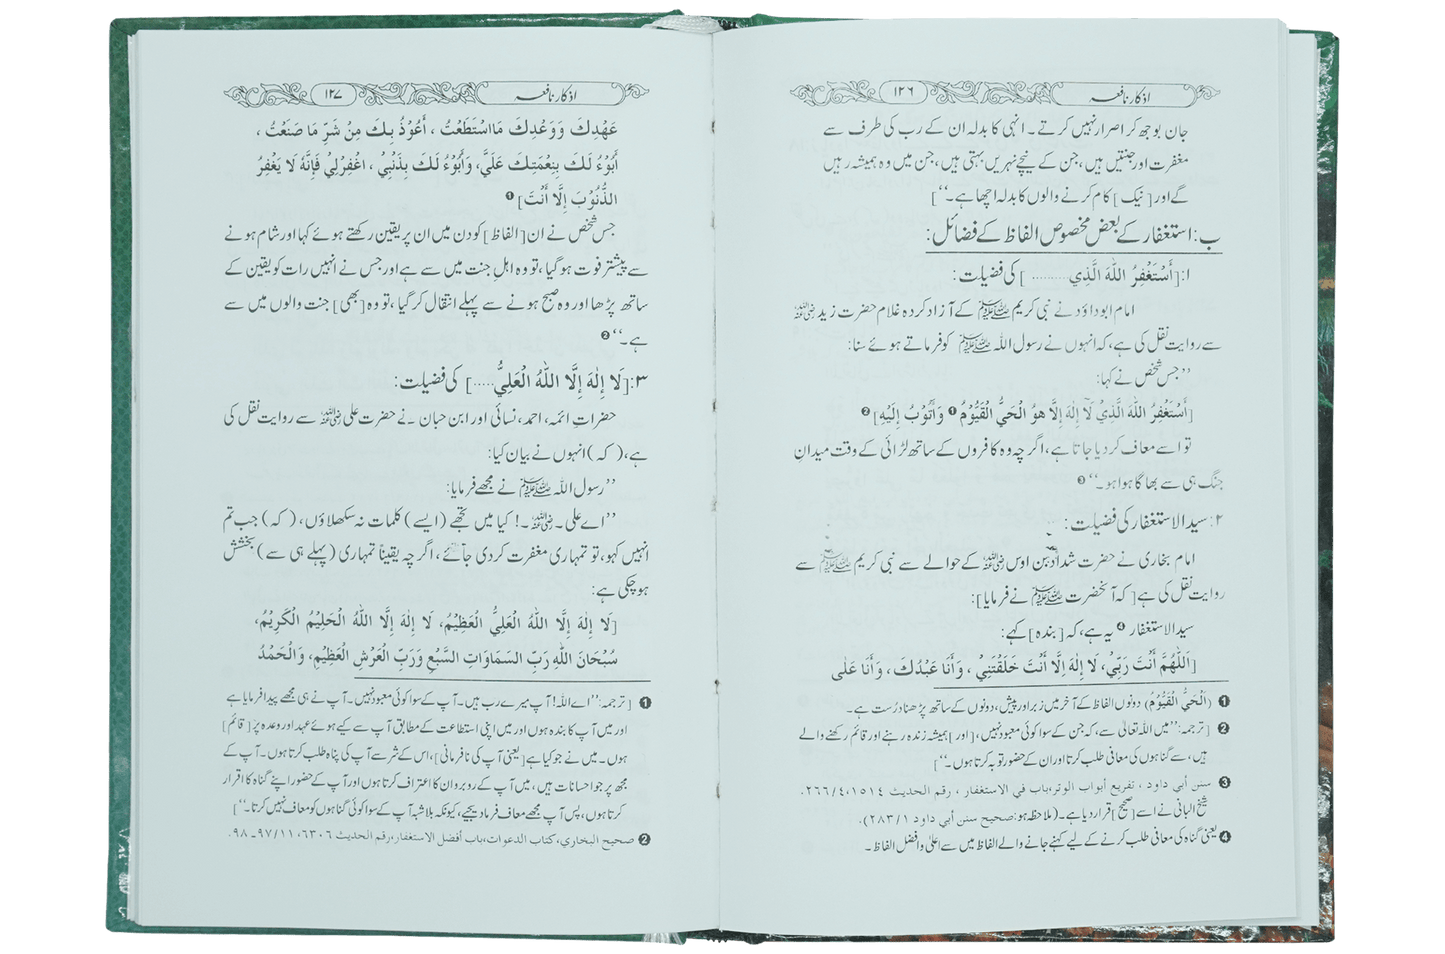 اذکار نافعہ
۱۲۶
جان بوجھ کر اصرار نہیں کرتے۔ انہی کا بدلہ ان کے رب کی طرف سے
مغفرت اور جنتیں ہیں، جن کے نیچے نہریں بہتی ہیں، جن میں وہ ہمیشہ رہیں
گے اور [نیک] کام کرنے والوں کا بدلہ اچھا ہے۔‘‘]
ب: استغفار کے بعض مخصوص الفاظ کے فضائل:
۱: [أَسْتَغْفِرُ اللّٰهَ الَّذِي ..........] کی فضیلت:
امام ابو داؤد نے نبی کریم ﷺ کے آزاد کردہ غلام حضرت زید رضی اللہ عنہ
سے روایت نقل کی ہے، کہ انہوں نے رسول اللہ ﷺ کو فرماتے ہوئے سنا:
’’جس شخص نے کہا:
[أَسْتَغْفِرُ اللّٰهَ الَّذِيْ لَآ إِلٰهَ إِلَّا هُوَ الْحَيُّ الْقَيُّوْمُ ❶ وَأَتُوْبُ إِلَيْهِ] ❷
تو اسے معاف کر دیا جاتا ہے، اگرچہ وہ کافروں کے ساتھ لڑائی کے وقت میدانِ
جنگ ہی سے بھاگا ہوا ہو۔‘‘ ❸
۲: سید الاستغفار کی فضیلت:
امام بخاری نے حضرت شداد بن اوس رضی اللہ عنہ کے حوالے سے نبی کریم ﷺ سے
روایت نقل کی ہے [کہ آنحضرت ﷺ نے فرمایا]:
سید الاستغفار ❹ یہ ہے، کہ [بندہ] کہے:
[اَللّٰهُمَّ أَنْتَ رَبِّيْ، لَا إِلٰهَ إِلَّا أَنْتَ خَلَقْتَنِيْ، وَأَنَا عَبْدُكَ، وَأَنَا عَلٰى
❶ (اَلْحَيُّ الْقَيُّوْمُ) دونوں الفاظ کے آخر میں زبر اور پیش، دونوں کے ساتھ پڑھنا درست ہے۔
❷ [ترجمہ: ’’میں اللہ تعالیٰ سے، کہ جن کے سوا کوئی معبود نہیں، [اور] ہمیشہ زندہ رہنے اور قائم رکھنے والے
ہیں، سے گناہوں کی معافی طلب کرتا اور ان کے حضور توبہ کرتا ہوں۔‘‘]
❸ سنن أبي داود، تفريع أبواب الوتر، باب في الاستغفار، رقم الحديث ١٥١٤، ٤/٢٦٦.
شیخ البانی نے اسے [صحیح] قرار دیا ہے۔ (ملاحظہ ہو: صحيح سنن أبي داود ١/٢٨٣).
❹ یعنی گناہ کی معافی طلب کرنے کے لیے کہے جانے والے الفاظ میں سے اعلیٰ و افضل الفاظ۔
اذکار نافعہ
۱۲۷
عَهْدِكَ وَوَعْدِكَ مَااسْتَطَعْتُ، أَعُوْذُ بِكَ مِنْ شَرِّ مَا صَنَعْتُ،
أَبُوْءُ لَكَ بِنِعْمَتِكَ عَلَيَّ، وَأَبُوْءُ لَكَ بِذَنْبِيْ، اغْفِرْلِيْ فَإِنَّهُ لَا يَغْفِرُ
الذُّنُوْبَ إِلَّا أَنْتَ] ❶
جس شخص نے ان [الفاظ] کو دن میں ان پر یقین رکھتے ہوئے کہا اور شام ہونے
سے پیشتر فوت ہو گیا، تو وہ اہلِ جنت میں سے ہے اور جس نے انہیں رات کو یقین کے
ساتھ پڑھا اور وہ صبح ہونے سے پہلے انتقال کر گیا، تو وہ [بھی] جنت والوں میں سے
ہے۔‘‘ ❷
۳: [لَا إِلٰهَ إِلَّا اللّٰهُ الْعَلِيُّ.....] کی فضیلت:
حضراتِ ائمہ، احمد، نسائی اور ابن حبان نے حضرت علی رضی اللہ عنہ سے روایت نقل کی
ہے، (کہ) انہوں نے بیان کیا:
’’رسول اللہ ﷺ نے مجھے فرمایا:
’’اے علی۔ رضی اللہ عنہ۔! کیا میں تجھے (ایسے) کلمات نہ سکھلاؤں، (کہ) جب تم
انہیں کہو، تو تمہاری مغفرت کر دی جائے، اگرچہ یقیناً تمہاری (پہلے ہی سے) بخشش
ہو چکی ہے:
[لَا إِلٰهَ إِلَّا اللّٰهُ الْعَلِيُّ الْعَظِيْمُ، لَا إِلٰهَ إِلَّا اللّٰهُ الْحَلِيْمُ الْكَرِيْمُ،
سُبْحَانَ اللّٰهِ رَبِّ السَّمَاوَاتِ السَّبْعِ وَرَبِّ الْعَرْشِ الْعَظِيْمِ، وَالْحَمْدُ
❶ [ترجمہ: ’’اے اللہ! آپ میرے رب ہیں۔ آپ کے سوا کوئی معبود نہیں۔ آپ نے ہی مجھے پیدا فرمایا ہے
اور میں آپ کا بندہ ہوں اور میں اپنی استطاعت کے مطابق آپ سے کیے ہوئے عہد اور وعدہ پر [قائم]
ہوں۔ میں نے جو کیا ہے [یعنی آپ کی نافرمانی]، اس کے شر سے آپ کی پناہ طلب کرتا ہوں۔ آپ کے
مجھ پر جو احسانات ہیں، میں آپ کے روبرو ان کا اعتراف کرتا ہوں اور آپ کے حضور اپنے گناہ کا اقرار
کرتا ہوں، پس آپ مجھے معاف فرما دیجیے، کیونکہ بلاشبہ آپ کے سوا کوئی گناہوں کو معاف نہیں کرتا۔‘‘]
❷ صحيح البخاري، كتاب الدعوات، باب أفضل الاستغفار، رقم الحديث ٦٣٠٦، ١١/٩٧ـ٩٨.